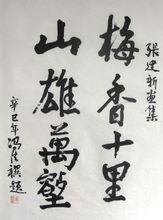 张建新画集
梅香十里
山雄萬壑
辛巳年冯其庸題